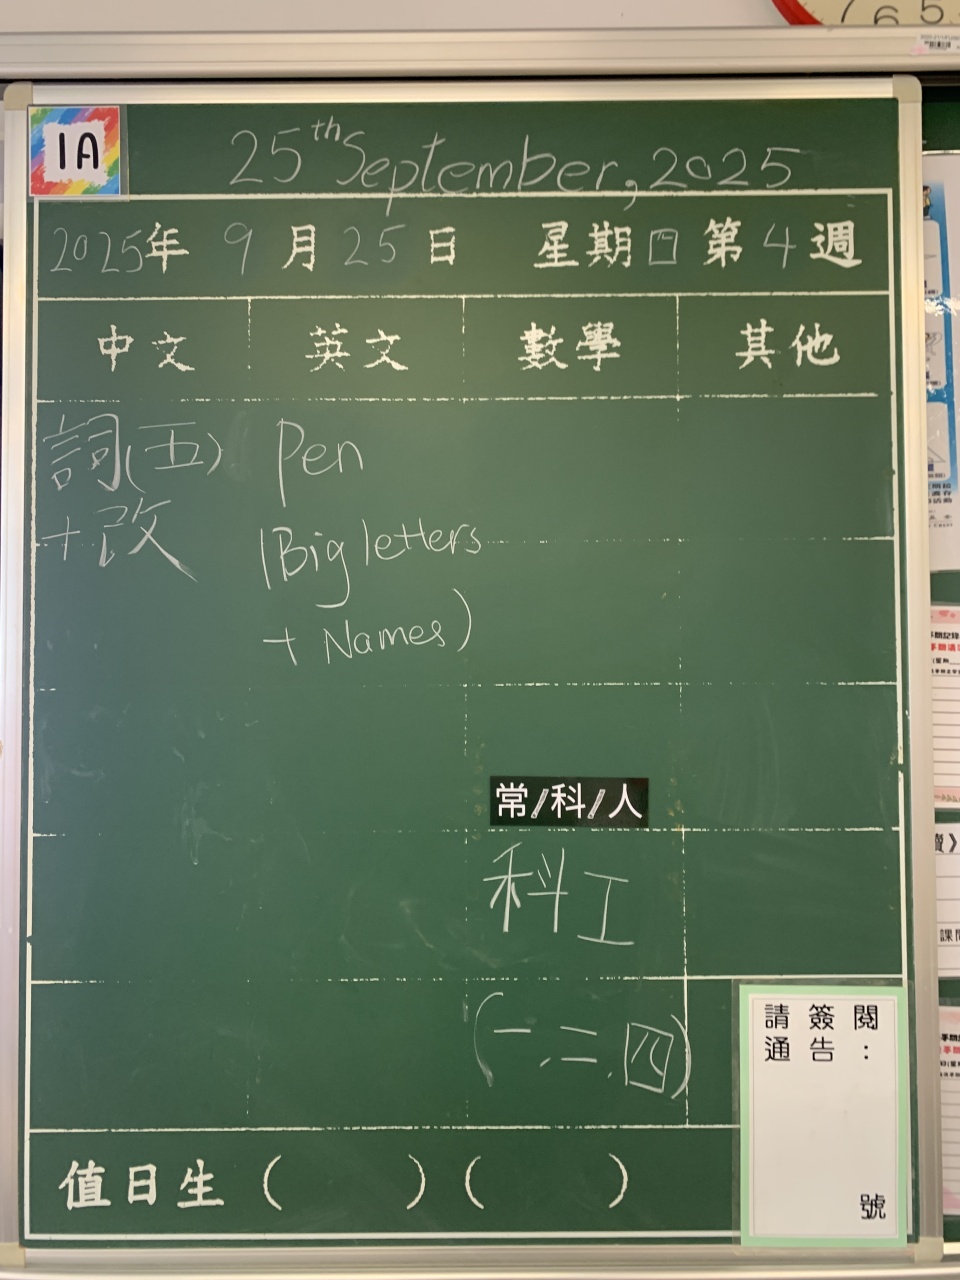 1A
25th September, 2025
2025年 9月25日 星期四 第4週
中文 英文 數學 其他
詞(五) Pen
+改 (Big letters
+ Names)
常/科/人
科工
(一、二、四)
請簽閱
通告：
號
值日生 ( ) ( )
7 6 5